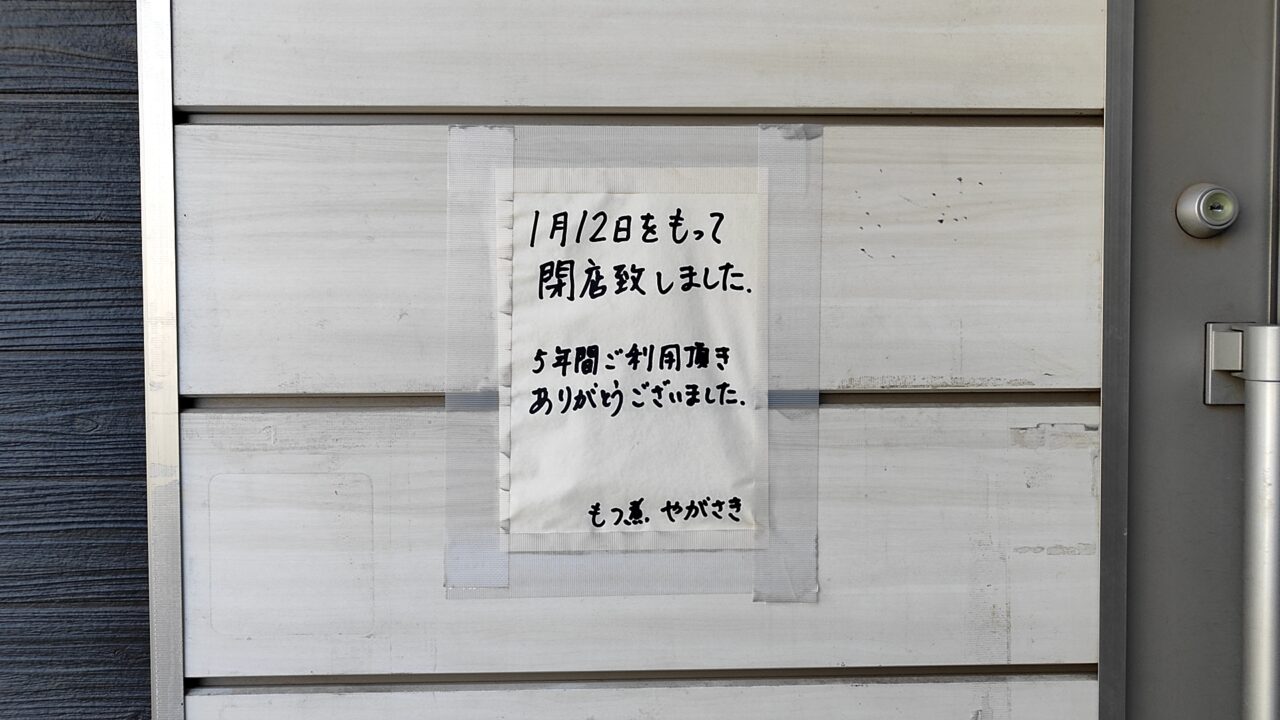 1月12日をもって
閉店致しました.
5年間ご利用頂き
ありがとうございました.
もつ煮.やがさき